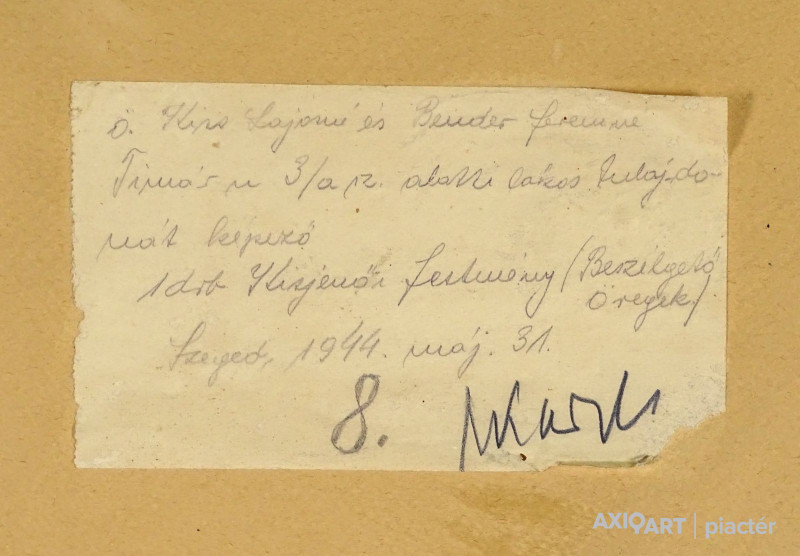 ö. Kiss Lajosné és Bender Ferencné
Timár u 3/a sz. alatti lakos tulajdo-
nát képező
1 drb Kisjenői festmény (Beszélgető
öregek.)
Szeged, 1944. máj. 31.
8.
AXIOART | piactér